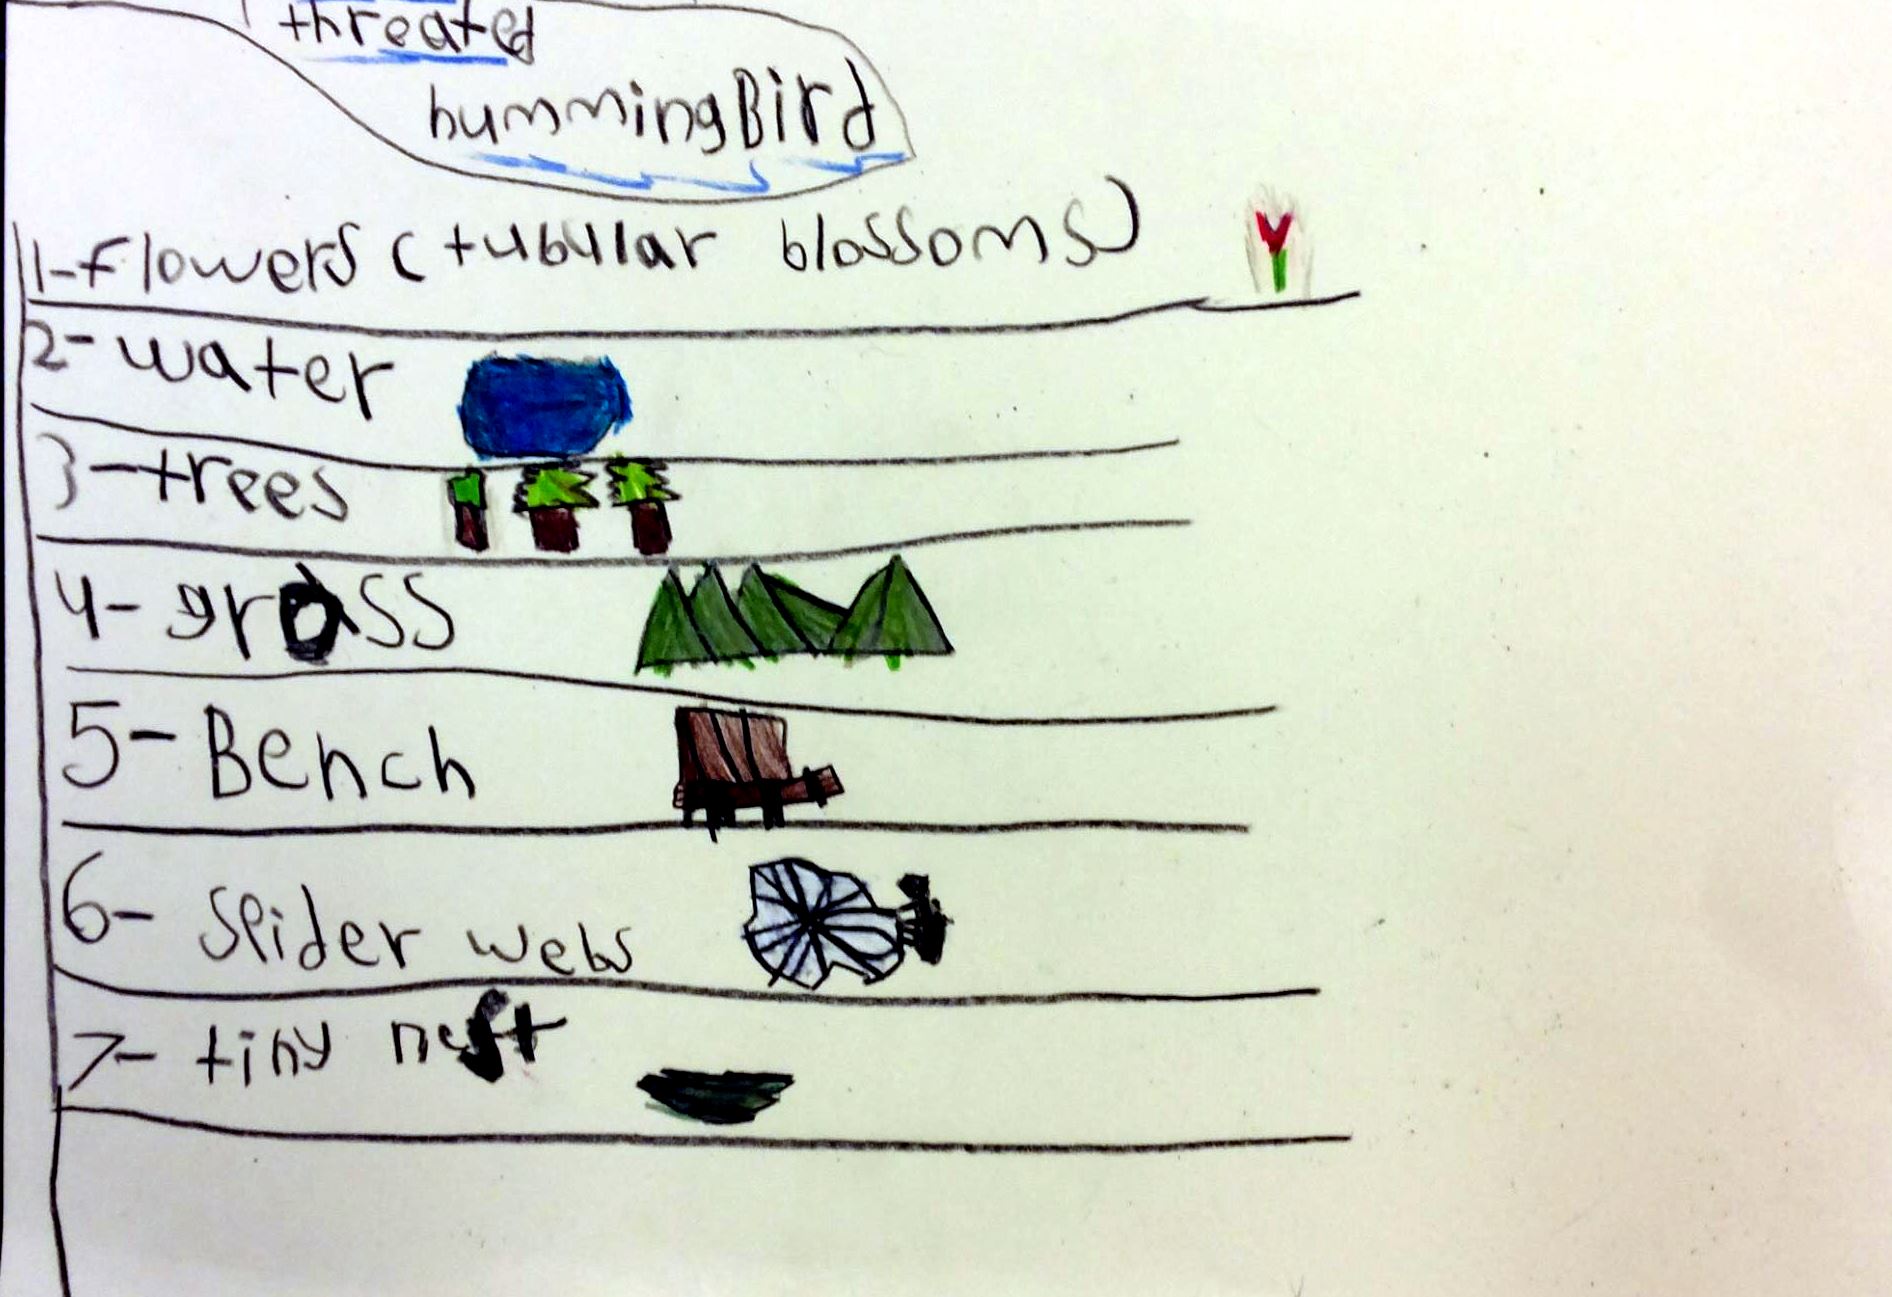 threated
hummingBird
1-flowers (tubular blossoms)
2-water
3-trees
4-grass
5-Bench
6-Spider webs
7-tiny nest